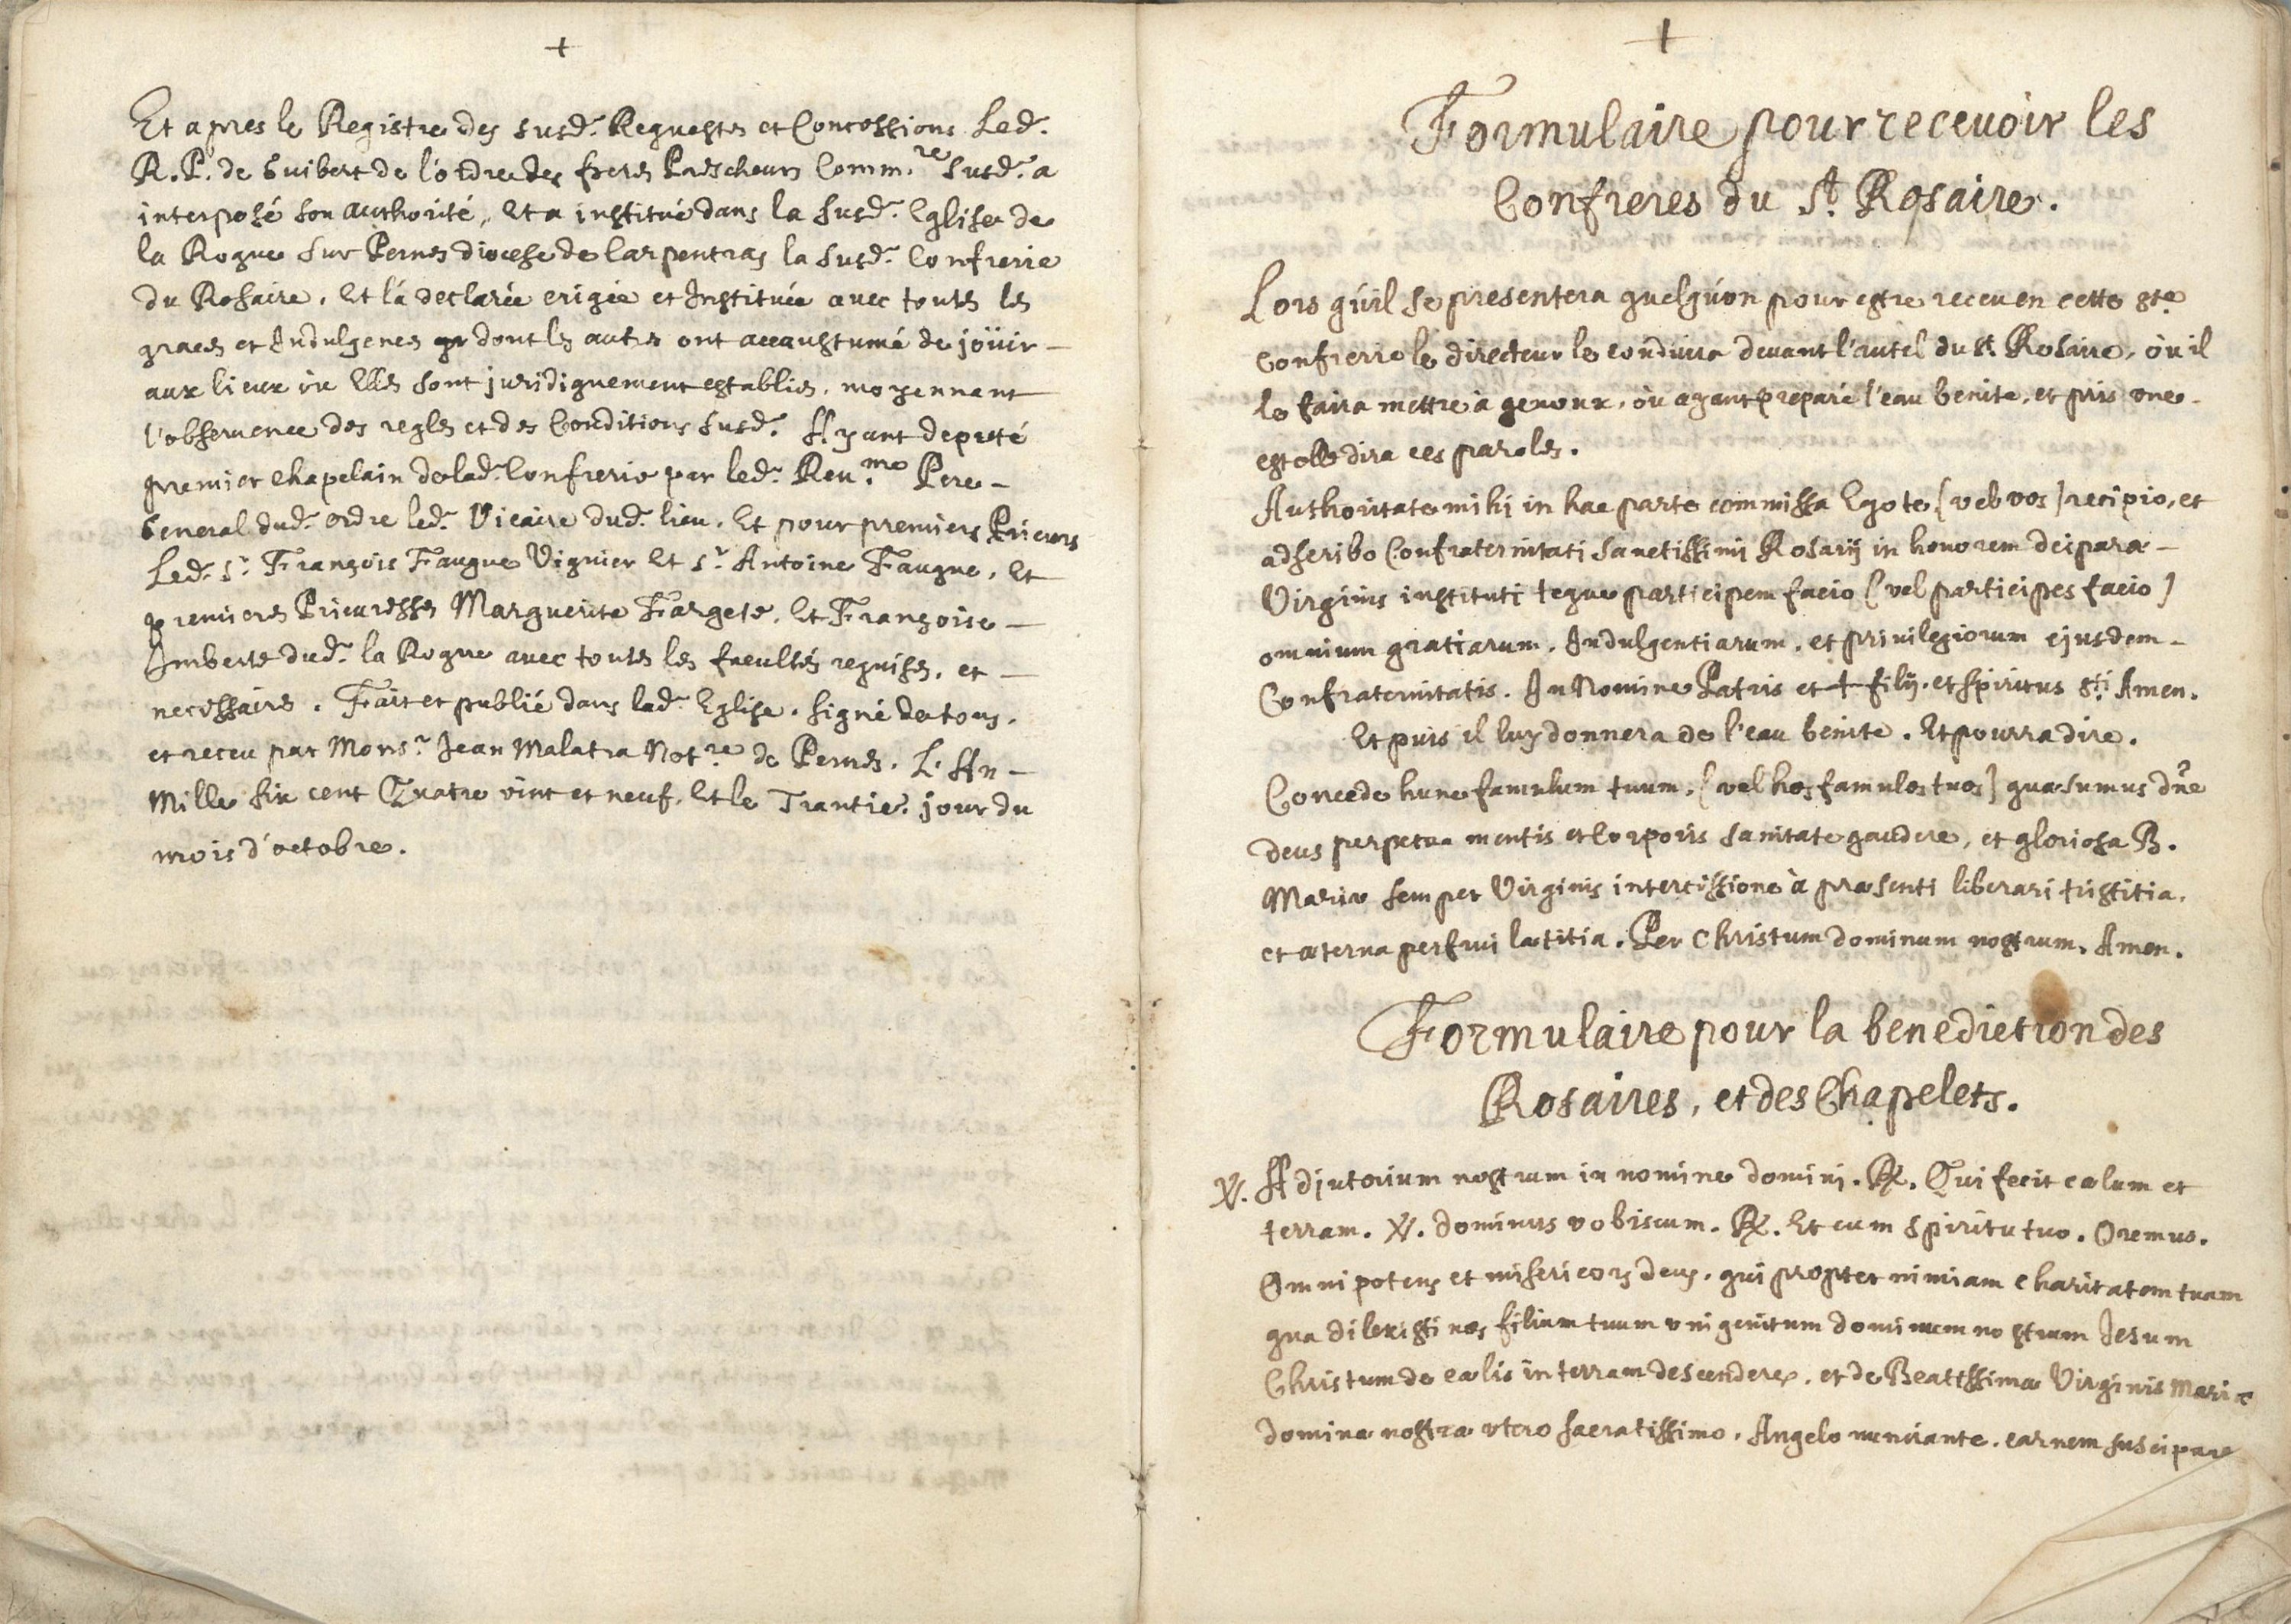 +
Et apres le Registre des susd. Requestes et Concessions Led.
R. P. de Guibert de l'ordre des freres Prescheurs Comm.re Susd. a
interposé son authorité, Et a institué dans la susd. Eglise de
la Roque sur Pernes diocese de Carpentras la susd. Confrerie
du Rosaire, Et l'a declarée erigée et Instituée avec toutes les
graces et Indulgences dont les autres ont accaustumé de joüir –
aux lieux ou Elles sont juridiquement establies, moyennant
l'observence des regles et des Conditions susd. Ayant depeté
premier chapelain de lad. Confrerie par led. Reu.me Pere –
General dud. ordre led. Vicaire dud. lieu, Et pour premiers Prieurs
Led. Sr. François Faugue Viguier Et Sr. Antoine Faugue, Et
premieres Prieuresses Marguerite Fargete, Et Françoise –
Imberte dud. la Roque avec toutes les facultés requises, et –
necessaires. Fait et publié dans lad. Eglise. signé de tous,
et receu par Monsr. Jean Malatra Not.re de Pernes, L'An –
Mille six cent Quatre vint et neuf, Et le Trantie. jour du
mois d'octobre.
+
Formulaire pour recevoir les
Confreres du St. Rosaire.
Lors qu'il se presentera quelqu'un pour estre receu en cette ste.
confrerie le directeur le conduira devant l'autel du st. Rosaire, ou il
le faira mettre à genoux, où ayant preparé l'eau benite, et pris une
estolle dira ces paroles.
Authoritate mihi in hac parte commissa Ego te [vel vos] recipio, et
adscribo Confraternitati Sanctissimi Rosarij in honorem deiparæ –
Virginis instituti teque participem facio [vel participes facio]
omnium gratiarum, Indulgentiarum, et privilegiorum ejusdem –
Confraternitatis. In Nomine Patris et + filij, et Spiritus sti. Amen.
Et puis il luy donnera de l'eau benite. Et pourra dire.
Concede hunc famulum tuum, [vel hos famulos tuos] quæsumus dñe
deus perpetua mentis et Corporis sanitate gaudere, et gloriosa B.
Mariæ semper Virginis intercissione à præsenti liberari tristitia,
et æterna perfrui lætitia. Per Christum dominum nostrum. Amen.
Formulaire pour la benediction des
Rosaires, et des Chapelets.
℣. Adjutorium nostrum in nomine domini. ℟. Qui fecit cœlum et
terram. ℣. dominus vobiscum. ℟. Et cum spiritu tuo. Oremus.
Omnipotens et misericors deus, qui propter nimiam charitatem tuam
qua dilexisti nos, filium tuum unigenitum dominum nostrum Jesum
Christum de cælis in terram descendere, et de Beatissimæ Virginis Mariæ
dominæ nostræ utero sacratissimo, Angelo nunciante, carnem suscipere